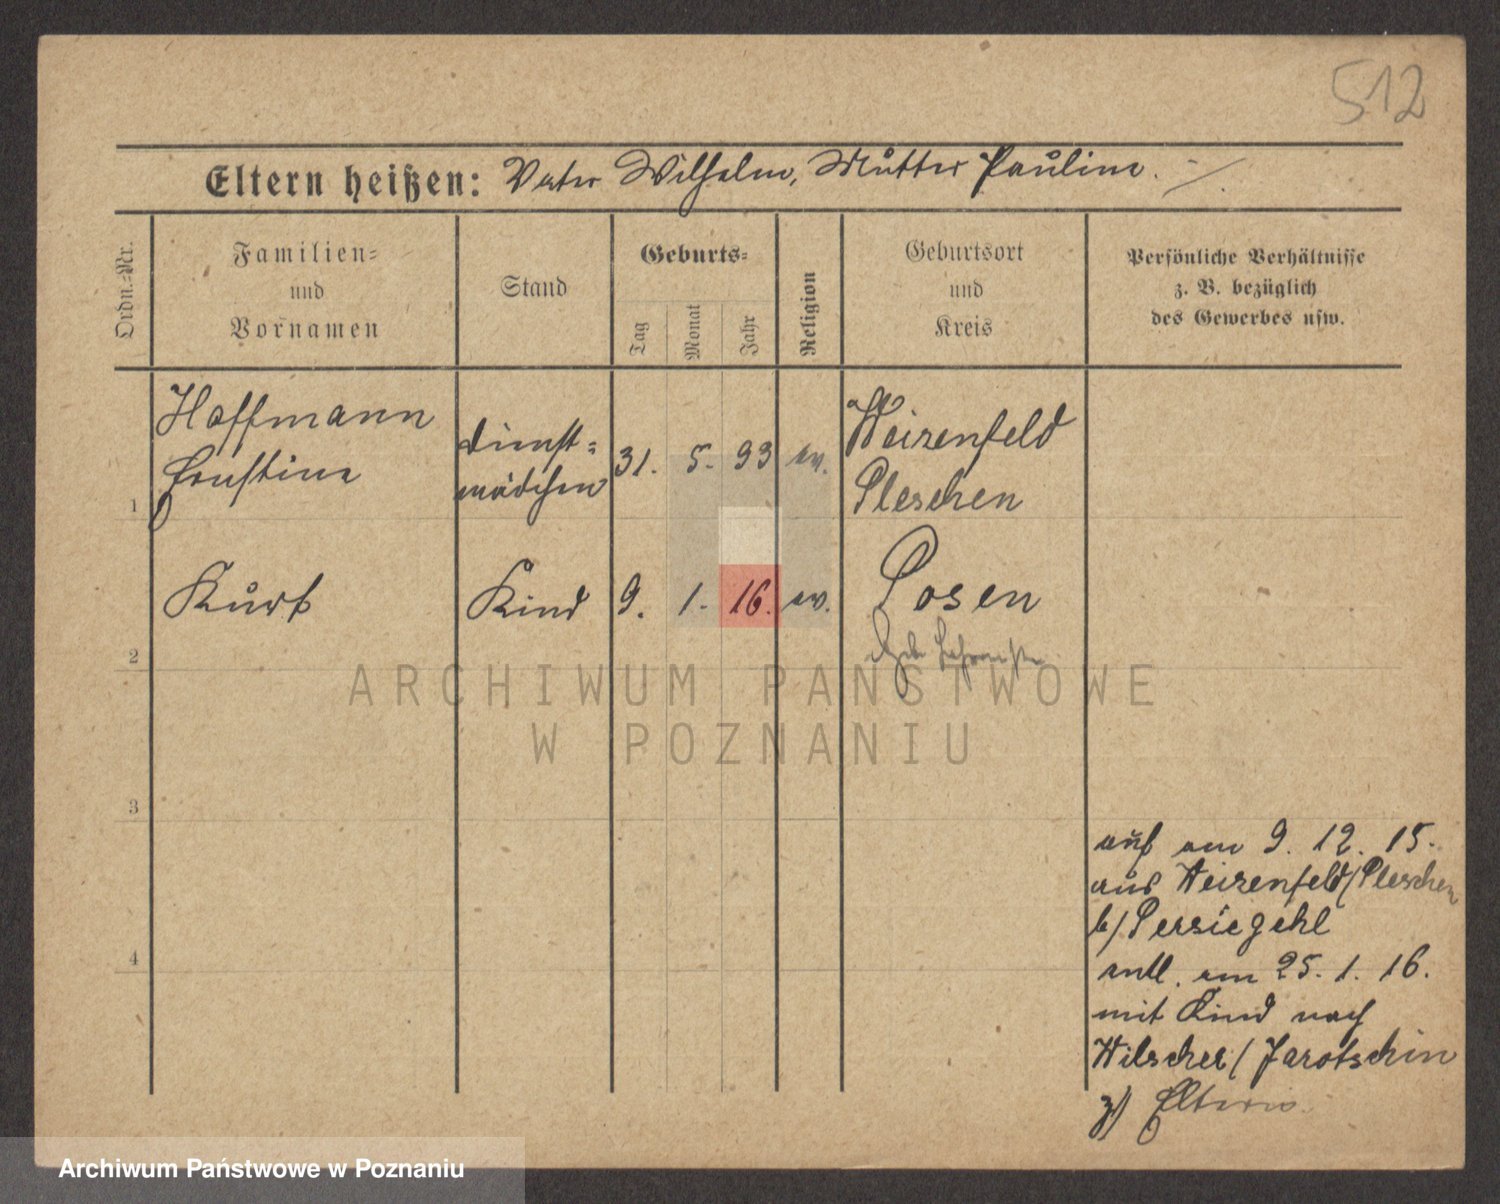 512
Eltern heißen: Vater Wilhelm, Mutter Pauline.
Ordn.-Nr.
Familien-
und
Vornamen
Stand
Geburts-
Tag
Monat
Jahr
Religion
Geburtsort
und
Kreis
Persönliche Verhältnisse
z. B. bezüglich
des Gewerbes usw.
1
Hoffmann
Ernstine
Dienst-
mädchen
31. 5. 93 ev.
Weizenfeld
Pleschen
2
Kurt
Kind
9. 1. 16. ev.
Posen
3
4
auf am 9. 12. 15.
aus Weizenfeld/Pleschen
b/ Persiegehl
entl. am 25. 1. 16.
mit Kind nach
Wilscher/Jarotschin
z/ Eltern.
ARCHIWUM PAŃSTWOWE
W POZNANIU
Archiwum Państwowe w Poznaniu